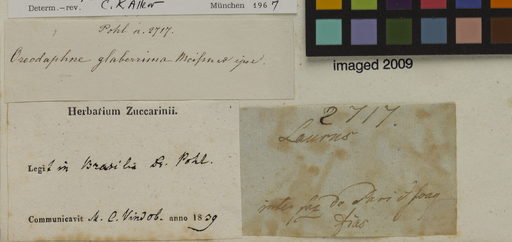 Determ.–rev. C. K. Allen München 1967
Pohl n. 2717.
Oreodaphne glaberrima Meisner ipse.
imaged 2009
Herbarium Zuccarinii.
Legit in Brasilia Dr. Pohl.
Communicavit M. C. Vindob. anno 1839
2717.
Laurus
inter faz do Pari & Joao
Dias